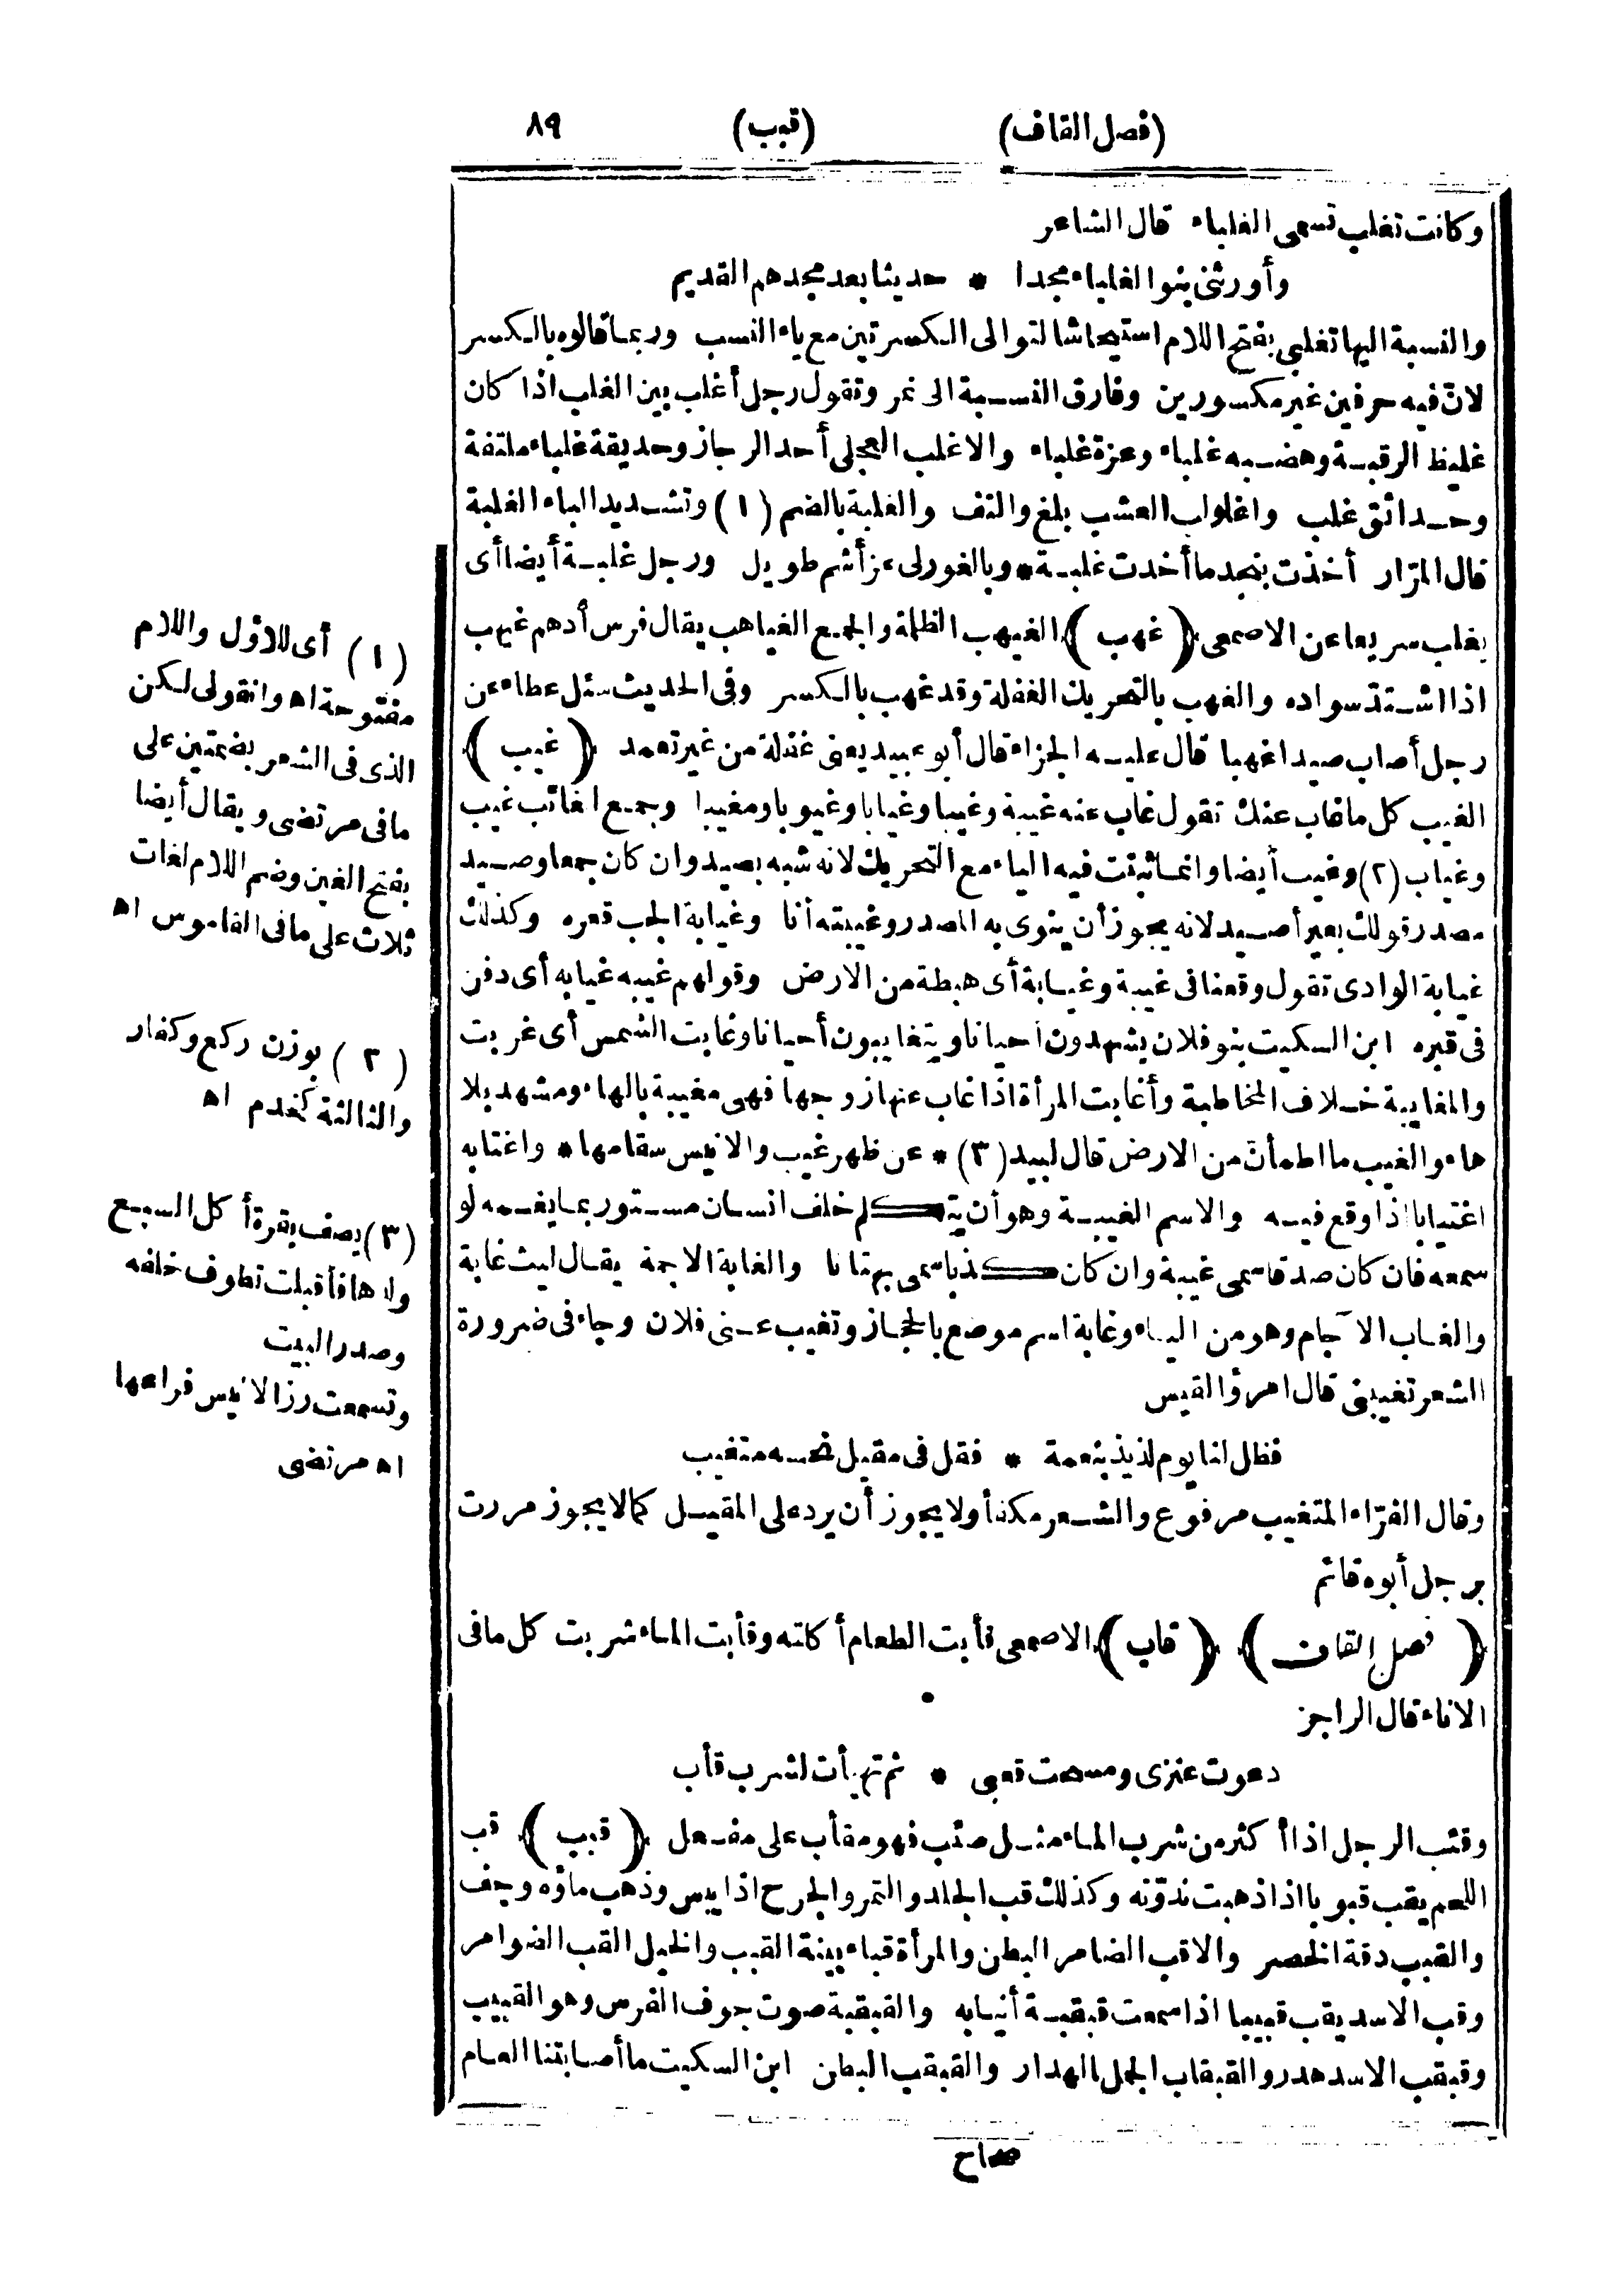 (فصل القاف) (قبب) ٨٩
وكانت تغلب تسمى الغلباء قال الشاعر
وأورثنى بنو الغلباء مجدا * حديثا بعد مجدهم القديم
والنسبة اليها تغلبى بفتح اللام استيحاشا لتوالى الكسرتين مع ياء النسب وربما قالوه بالكسر
لانّ فيه حرفين غير مكسورين وفارق النسبة الى نمر وتقول رجل أغلب بين الغلب اذا كان
غليظ الرقبة وهضبه غلباء وعزة غلباء والاغلب العجلى أحد الرجاز وحديقة غلباء ملتفة
وحدائق غلب واغلولب العشب بلغ والتف والغلبة بالضم (١) وتشديد الباء الغلبة
قال المرّار أخذت بنجد ما أخذت غلبة * وبالغور لى عز أشم طويل ورجل غلبة أيضا أى
يغلب سريعا عن الاصمعى ﴿غهب﴾ الغيهب الظلمة والجمع الغياهب يقال فرس أدهم غيهب
اذا اشتدّ سواده والغهب بالتحريك الغفلة وقد غهب بالكسر وفى الحديث سئل عطاء عن
رجل أصاب صيدا غهبا قال عليه الجزاء قال أبو عبيد يعنى غفلة من غير تعمد ﴿غيب﴾
الغيب كل ما غاب عنك تقول غاب عنه غيبة وغيبا وغيابا وغيوبا ومغيبا وجمع الغائب غيب
وغياب (٢) وغيب أيضا وانما ثبتت فيه الياء مع التحريك لانه شبه بصيد وان كان جمعا وصيد
مصدر قولك بعير أصيد لانه يجوز أن ينوى به المصدر وغيبته أنا وغيابة الجب قعره وكذلك
غيابة الوادى تقول وقعنا فى غيبة وغيابة أى هبطة من الارض وقولهم غيبه غيابه أى دفن
فى قبره ابن السكيت بنو فلان يشهدون أحيانا ويتغايبون أحيانا وغابت الشمس أى غربت
والمغايبة خلاف المخاطبة وأغابت المرأة اذا غاب عنها زوجها فهى مغيبة بالهاء ومشهد بلا
هاء والغيب ما اطمأنّ من الارض قال لبيد (٣) * عن ظهر غيب والانيس سقامها * واغتابه
اغتيابا اذا وقع فيه والاسم الغيبة وهو أن يتكلم خلف انسان مستور بما يغمه لو
سمعه فان كان صدقا سمى غيبة وان كان كذبا سمى بهتانا والغابة الاجمة يقال ليث غابة
والغاب الآجام وهو من الياء وغابة اسم موضع بالحجاز وتغيب عنى فلان وجاء فى ضرورة
الشعر تغيبنى قال امرؤ القيس
فظل لنا يوم لذيذ بنعمة * فقل فى مقيل نحسه متغيب
وقال الفرّاء المتغيب مرفوع والشعر مكفأ ولا يجوز أن يرد على المقيل كما لا يجوز مررت
برجل أبوه قائم
﴿فصل القاف﴾ ﴿قاب﴾ الاصمعى قأبت الطعام أكلته وقأبت الماء شربت كل ما فى
الاناء قال الراجز
دعوت عنزى ومسحت قعبى * ثم تهيأت لشرب قأب
وقئب الرجل اذا أكثر من شرب الماء مثل صئب فهو مقأب على مفعل ﴿قبب﴾ قب
اللحم يقب قبوبا اذا ذهبت ندوّته وكذلك قب الجلد والتمر والجرح اذا يبس وذهب ماؤه وجف
والقبب دقة الخصر والاقب الضامر البطن والمرأة قباء بينة القبب والخيل القب الضوامر
وقب الاسد يقب قبيبا اذا سمعت قبقبة أنيابه والقبقبة صوت جوف الفرس وهو القبيب
وقبقب الاسد هدر والقبقاب الجمل الهدار والقبقب البطن ابن السكيت ما أصابتنا العام
صحاح
(١) أى للاوّل واللام
مفتوحة اه وانقولى لكن
الذى فى الشعر بضمتين على
ما فى مرتضى ويقال أيضا
بفتح الغين وضم اللام لغات
ثلاث على ما فى القاموس اه
(٢) بوزن ركع وكفار
والثالثة كخدم اه
(٣) يصف بقرة أكل السبع
ولدها فأقبلت تطوف خلفه
وصدر البيت
وتسمعت رز الانيس فراعها
اه مرتضى